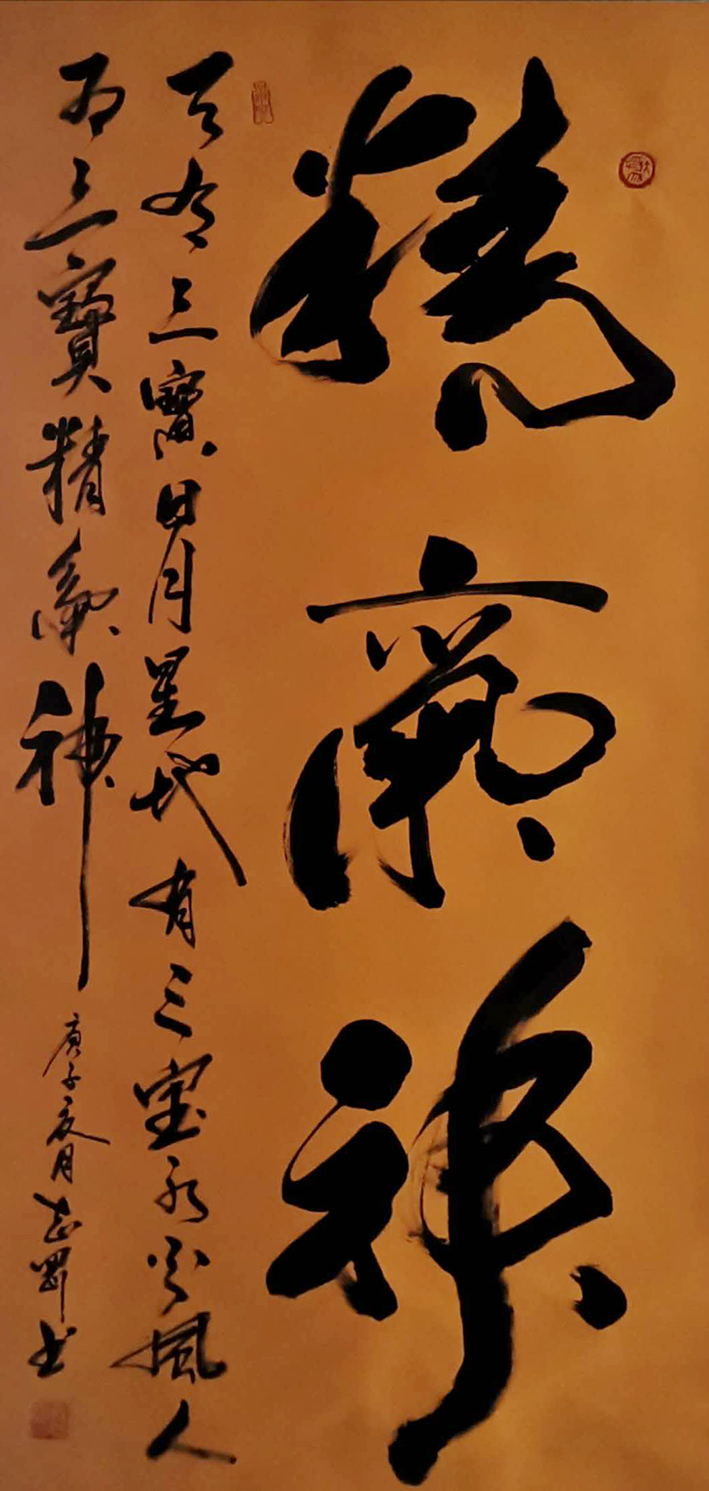 精氣神
天有三寶日月星地有三宝水火風人
有三寶精氣神
庚子夏月志罡书